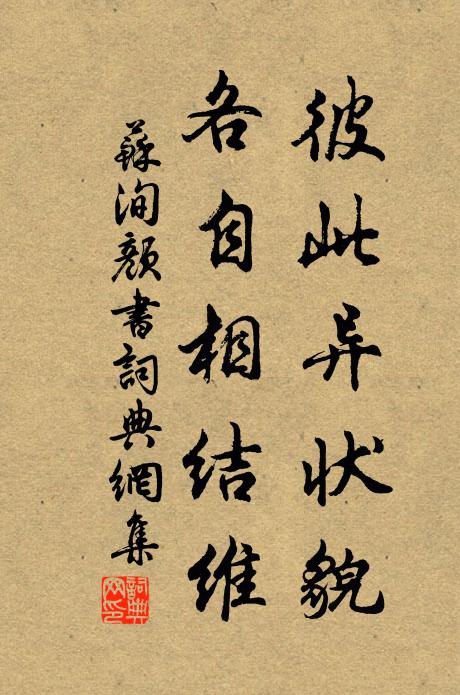 彼此异状貌
各自相结维
蘇洵顏書詞典網集
詞典网印